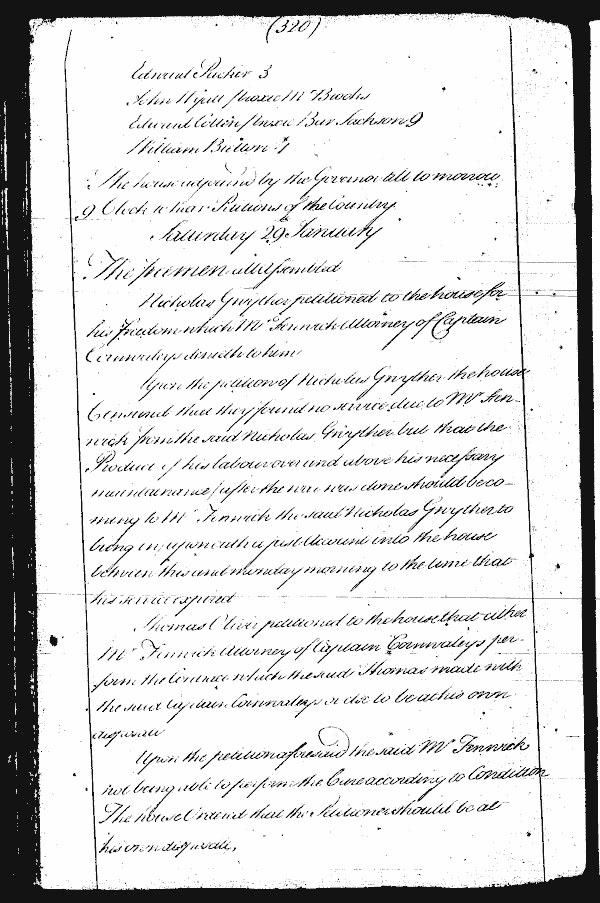 (320)
Edward Packer 3
John Wyatt proxie Mr Brooks
Edward Cotton proxie Bar Jackson 9
William Bretain 1
The house adjourned by the Governor till to morrow
9 Clock to hear Petitions of the Country
Saturday 29 January
The freemen all Assembled
Nicholas Gwyther petitioned to the house for
his freedom which Mr Fenwick Attorney of Captain
Cornwaleys denieth to him
Upon the petition of Nicholas Gwyther the house
Censured that they found no service due to Mr Fen-
wick from the said Nicholas Gwyther but that the
Product of his labour over and above his necessary
maintainance (after the war was done should be co-
ming to Mr Fenwick the said Nicholas Gwyther to
bring in upon oath a just Account into the house
between this and monday morning to the time that
his service expired
Thomas Oliver petitioned to the house that either
Mr Fenwick Attorney of Captain Cornwaleys per-
form the which the said Thomas made with
the said Captain Cornwaleys or else to be at his own
disposall
Upon the petition aforesaid the said Mr Fenwick
not being able to perform the Cure according to Condition
The house Ordered that the Petitioner should be at
his own disposall,